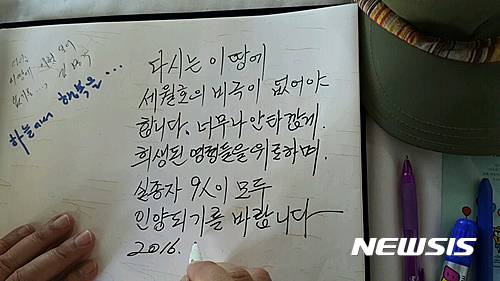 하늘에서 행복을 ...
다시는 이 땅에
세월호의 비극이 없어야
합니다. 너무나 안타깝게
희생된 영령들을 위로하며,
실종자 9人이 모두
인양되기를 바랍니다
2016.
NEWSIS